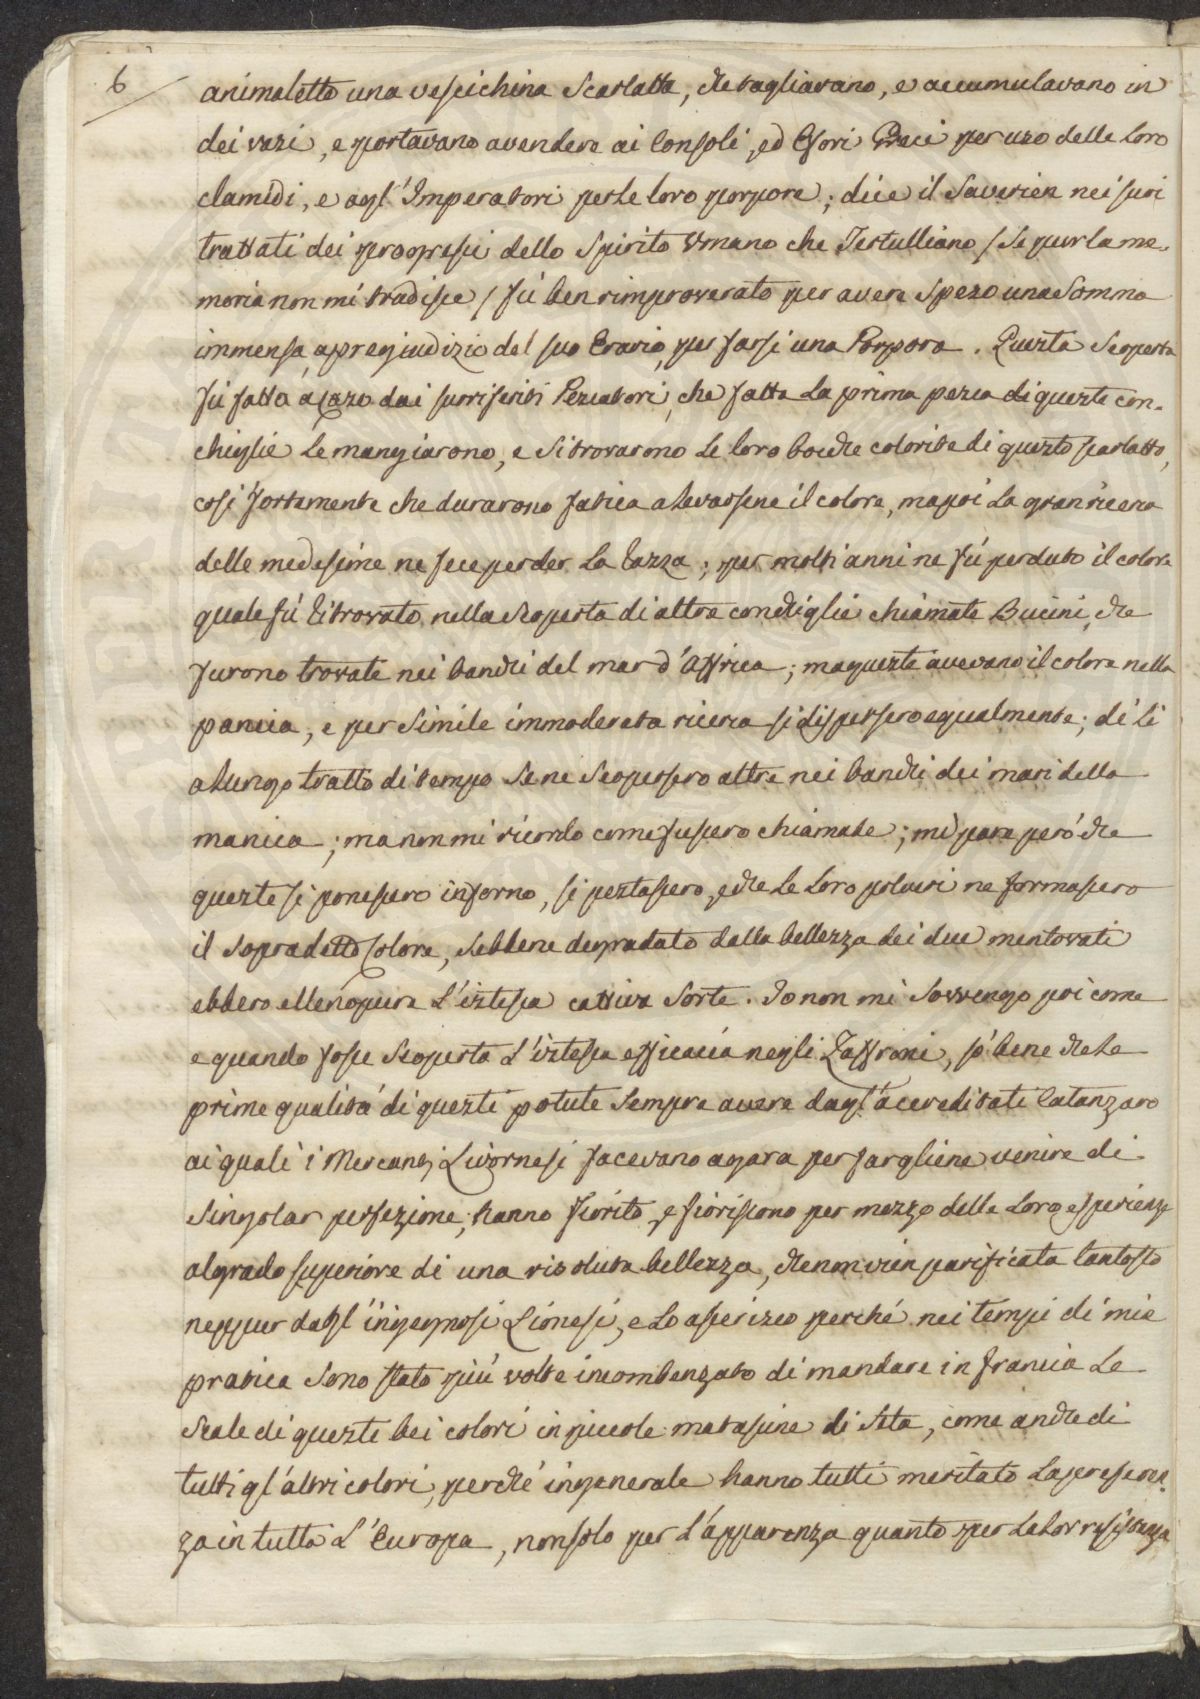 6
animaletto una vescichina Scarlatta, che tagliavano, e accumulavano in
dei vazi, e portavano avendere ai Consoli, ed Efori Greci per uzo delle Loro
clamidi, e agl' Imperatori perle loro porpore; dice il Saverien nei suoi
trattati dei progressi dello Spirito Umano che Tertulliano / Se pur la me-
moria non mi tradisce / fù ben rimproverato per avere Spezo una Somma
immensa, apregiudizio del suo Erario, per farsi una Porpora. Quezta Scoperta
fù fatta à Cazo dai suriferiti Pezcatori, che fatta La prima pezca di quezte con-
chiglie Le mangiarono, e Si trovarono Le loro bocche colorite di quezto scarlatto,
cosi fortemente che durarono fatica a Levarsene il colore, ma poi La gran ricerca
delle medesime ne fece perder La Razza; per molti anni ne fù perduto il colore
quale fù Ritrovato nella Scoperta di altre conchiglie chiamate Bucini, che
furono trovate nei banchi del mar d'Affrica; ma quezte avevano il colore nella
pancia, e per Simile immoderata ricerca si dispersero egualmente; di Lì
a Lungo tratto di tempo Se ne Scopersero altre nei banchi dei mari della
manica; ma non mi ricordo come fussero chiamate; mi pare però che
quezte si ponessero in forno, si peztassero, e che Le Loro polveri ne formassero
il Sopradetto Colore, Sebbene degradato dalla bellezza dei due mentovati
ebbero ellenopure L'iztessa cattiva Sorte. Io non mi Sovvengo poi come
e quando fosse Scoperta L'iztessa efficacia negli Zaffroni, sò bene che Le
prime qualità di quezti potute Sempre avere dagl'accreditati Catanzaro
ai quali i Mercanti Livornesi facevano agara per fargliene venire di
Singolar perfezione, hanno fiorito, e fioriscono per mezzo delle Loro esperienze
algrado superiore di una risoluta bellezza, che non vien parificata tantosto
neppur dagl'ingegnosi Lionesi, e Lo asserizco perché nei tempi di mia
pratica Sono stato più volte incombenzato di mandare in francia Le
Scale di quezti bei colori in piccole matassine di Seta, come anche di
tutti gl'altri colori, perchè ingenerale hanno tutti meritato La preferen-
za in tutta L'Europa, non solo per L'apparenza quanto per La Lor resistenza